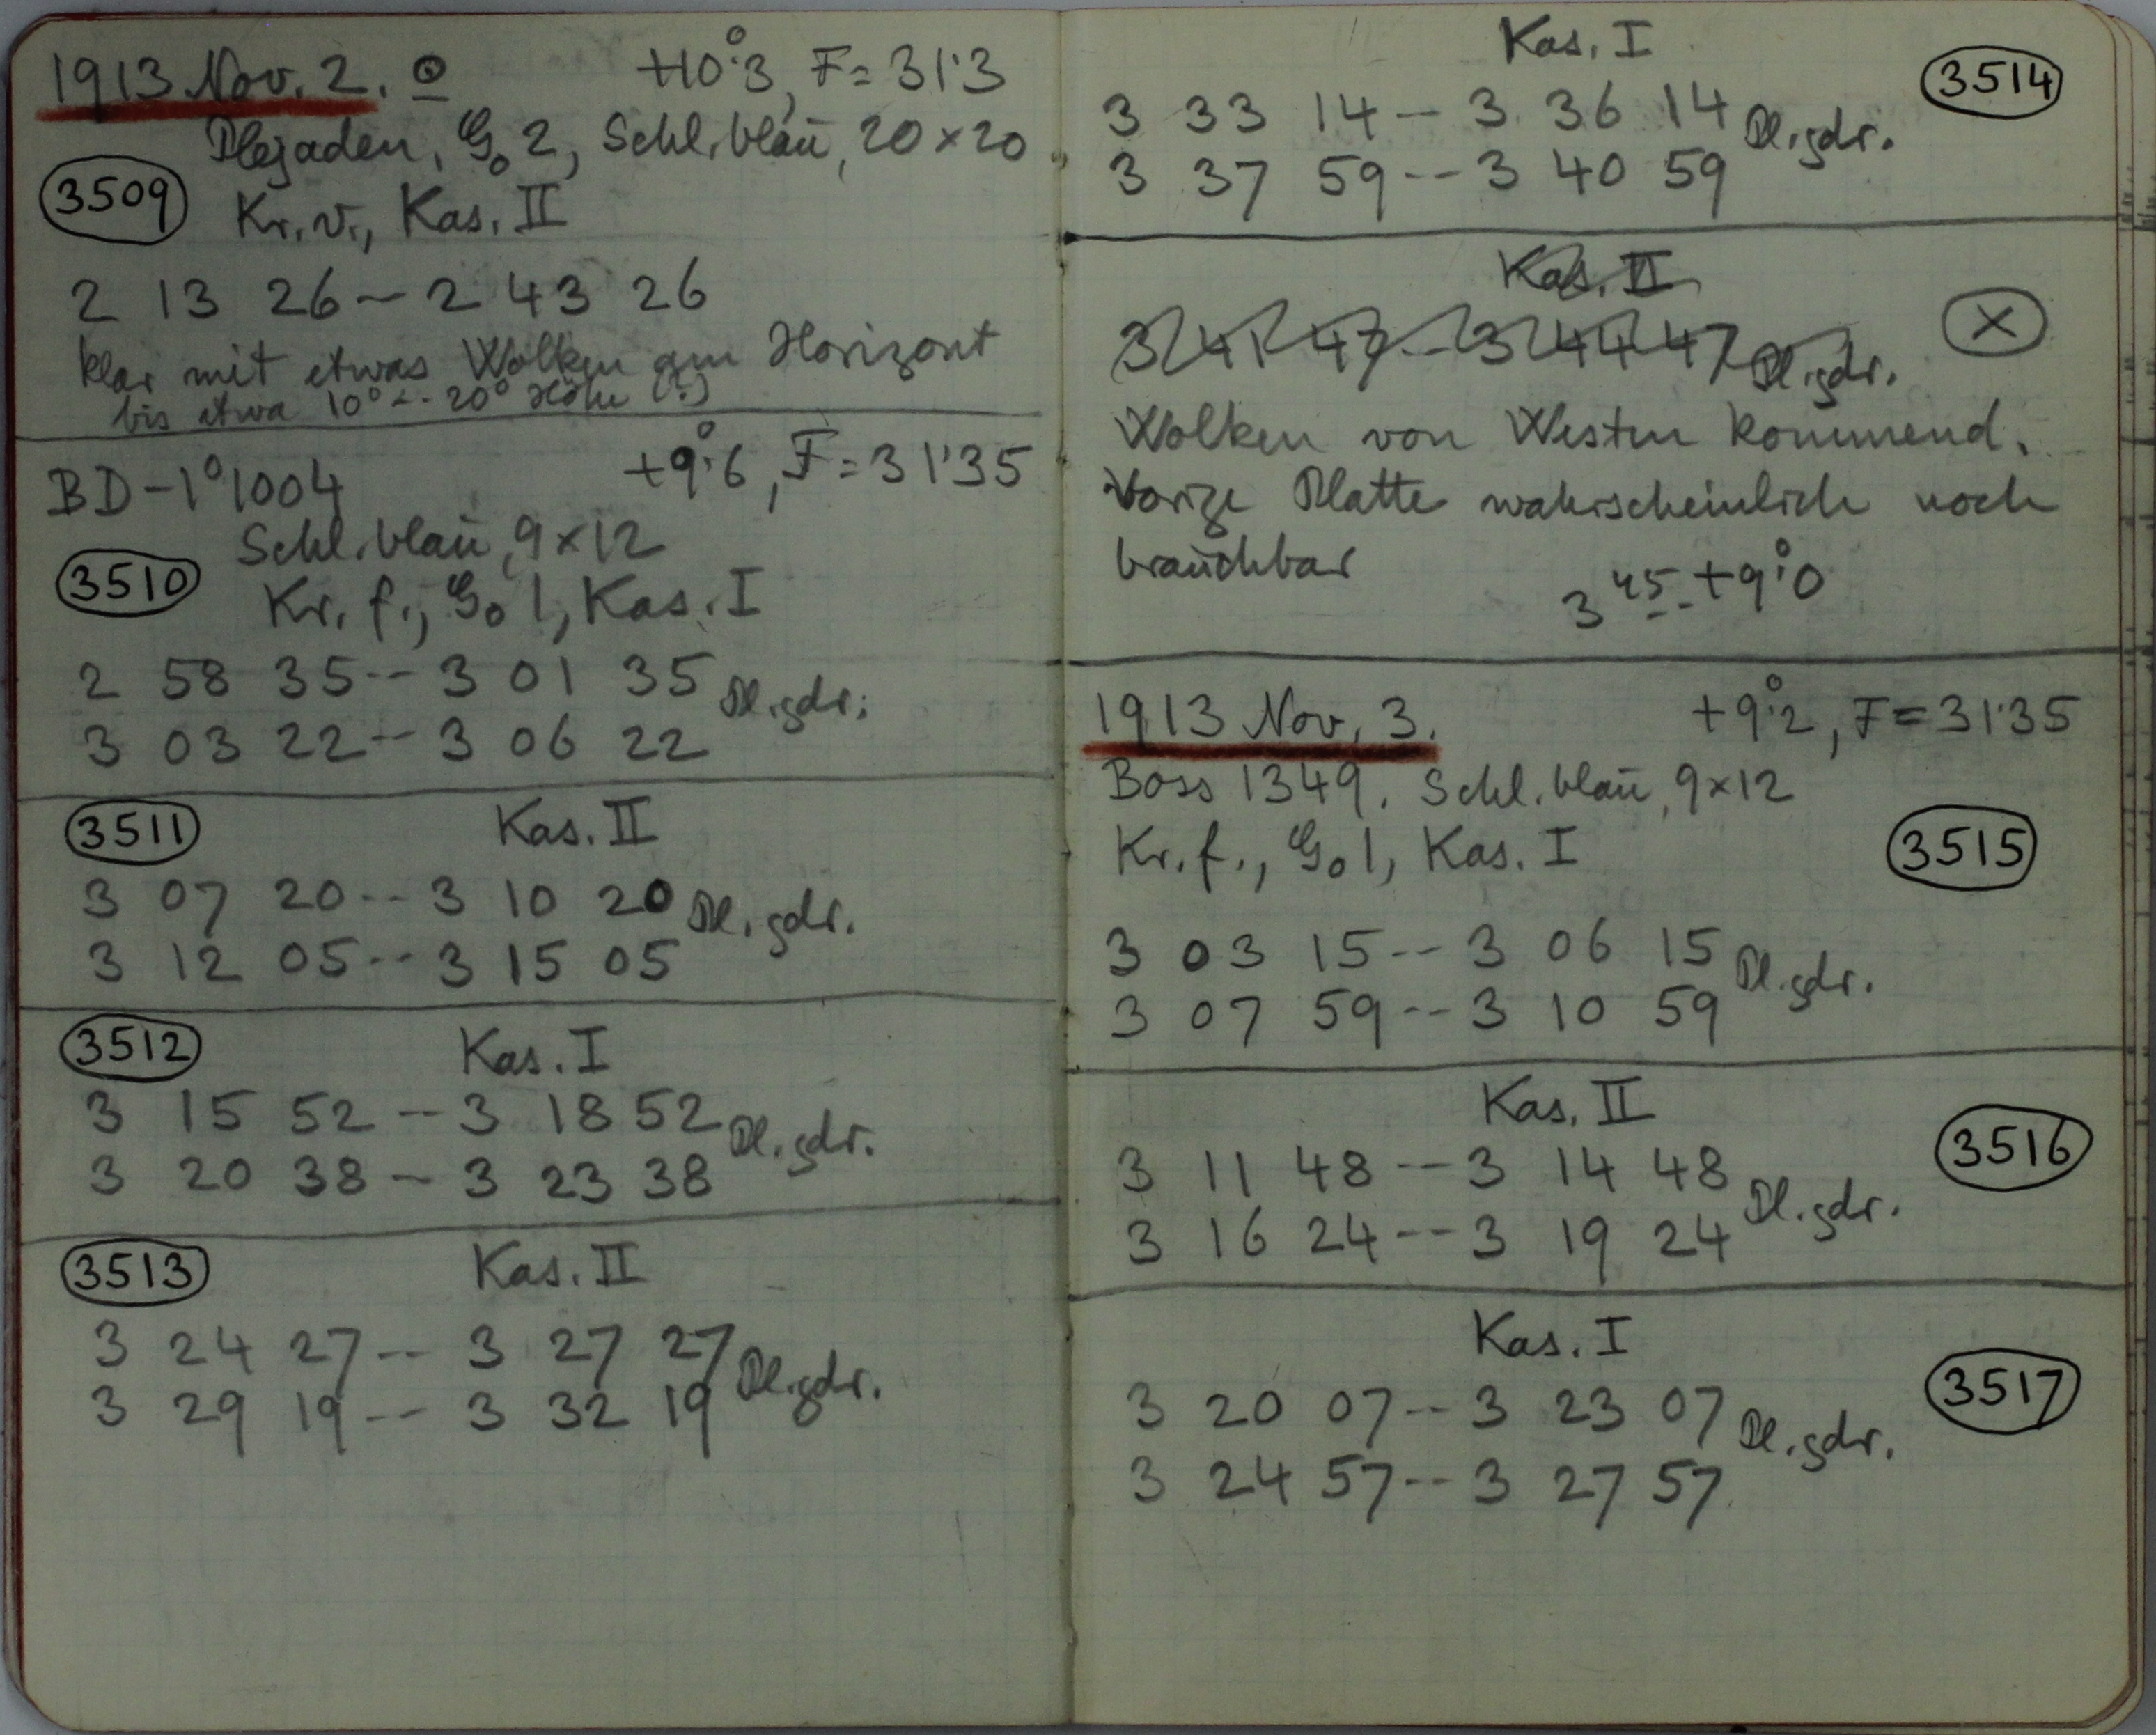 1913 Nov. 2. ☉ +10°.3, F = 31.3
Plejaden, G. 2, Schl. blau, 20 × 20
3509 Kr. v., Kas. II
2 13 26 -- 2 43 26
klar mit etwas Wolken am Horizont
bis etwa 10° -- 20° Höhe (?)
BD -1° 1004 +9°.6, F = 31.35
Schl. blau, 9 × 12
3510 Kr. f., G. 1, Kas. I
2 58 35 -- 3 01 35 Pl. gdr.
3 03 22 -- 3 06 22
3511 Kas. II
3 07 20 -- 3 10 20 Pl. gdr.
3 12 05 -- 3 15 05
3512 Kas. I
3 15 52 -- 3 18 52 Pl. gdr.
3 20 38 -- 3 23 38
3513 Kas. II
3 24 27 -- 3 27 27 Pl. gdr.
3 29 19 -- 3 32 19
Kas. I 3514
3 33 14 -- 3 36 14 Pl. gdr.
3 37 59 -- 3 40 59
Kas. II
3 41 47 -- 3 44 47 Pl. gdr. X
Wolken von Westen kommend.
Vorige Platte wahrscheinlich noch
brauchbar
3 45 -- +9°.0
1913 Nov. 3. +9°.2, F = 31.35
Boss 1349. Schl. blau, 9 × 12
Kr. f., G. 1, Kas. I 3515
3 03 15 -- 3 06 15 Pl. gdr.
3 07 59 -- 3 10 59
Kas. II 3516
3 11 48 -- 3 14 48 Pl. gdr.
3 16 24 -- 3 19 24
Kas. I 3517
3 20 07 -- 3 23 07 Pl. gdr.
3 24 57 -- 3 27 57